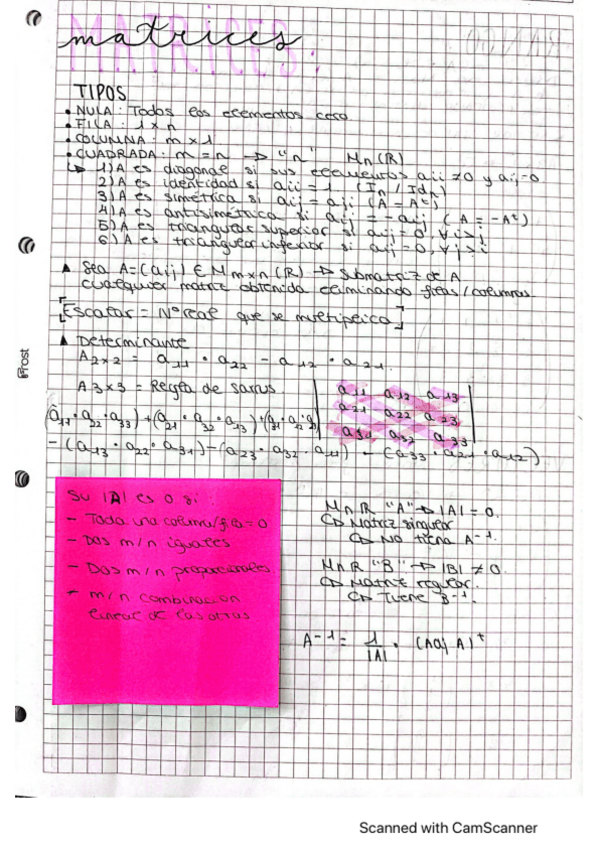 matrices
MATRICES:
TIPOS
• NULA: Todos los elementos cero
• FILA: 1 x n
• COLUMNA: m x 1
• CUADRADA: m = n → "n" Mn (R)
↳ 1) A es diagonal si sus elementos aii ≠ 0 y aij = 0
2) A es identidad si aii = 1 (In / Idn)
3) A es simétrica si aij = aji (A = Aᵗ)
4) A es antisimétrica si aij = -aij (A = -Aᵗ)
5) A es triangular superior si aij = 0, ∀ i > j
6) A es triangular inferior si aij = 0, ∀ j > i
▲ Sea A = (aij) ∈ Mmxn (R) → Submatriz de A
cualquier matriz obtenida eliminando filas/columnas.
[Escalar = Nº real que se multiplica]
▲ Determinante
A2x2 = a11 · a22 - a12 · a21.
A3x3 = Regla de sarrus
a11 a12 a13
a21 a22 a23
a31 a32 a33
(a11 · a22 · a33) + (a21 · a32 · a13) +
- (a13 · a22 · a31) - (a23 · a32 · a11) - (a33 · a21 · a12)
Su |A| es 0 si:
- Toda una columna/fila = 0
- Dos m/n iguales
- Dos m/n proporcionales
- m/n combinacion
lineal de las otras
Mn R "A" → |A| = 0.
↳ Matriz singular
↳ No tiene A⁻¹.
Mn R "B" → |B| ≠ 0.
↳ Matriz regular.
↳ Tiene B⁻¹.
A⁻¹ = 1/|A| · (Adj A)ᵗ
Frost
Scanned with CamScanner